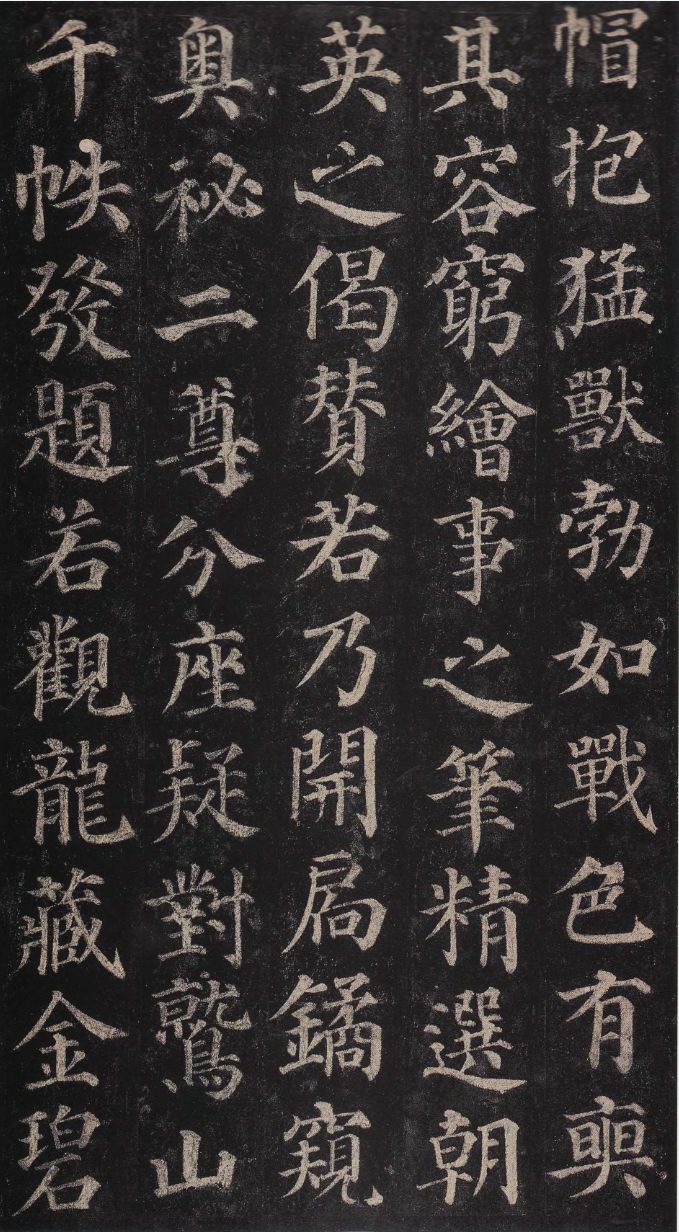 帽抱猛獸勃如戰色有奭
其容窮繪事之筆精選朝
英之偈賛若乃開扃鐍窺
奥祕二尊分座疑對鷲山
千帙發題若觀龍藏金碧